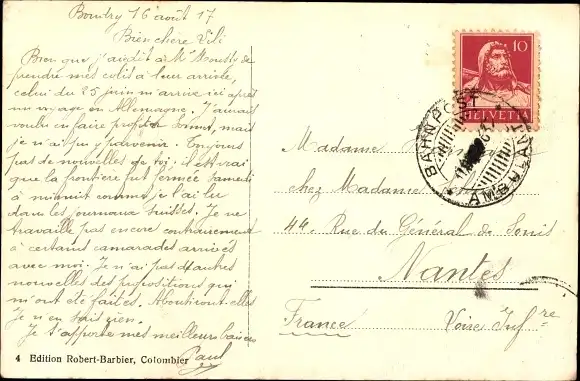 Boudry 16 août 17
Bien chère Lili
Bien que j'ai dit à Mr Moutty de
prendre mes colis à leur arrivée,
celui du 25 juin m'arrive ici après
un voyage en Allemagne. J'aurais
voulu en faire profiter mais
je n'ai pu y parvenir. Toujours
pas de nouvelles de toi. il est vrai
que la frontière fut fermée Samedi
à minuit comme je l'ai lu
dans les journaux suisses. Je ne
travaille pas encore contrairement
à certains camarades arrivés
avec moi. Je n'ai pas d'autres
nouvelles des propositions qui
m'ont été faites. Aboutiront-elles
Je n'en sais rien.
Je t'apporte mes meilleurs baisers
Paul
4 Edition Robert-Barbier, Colombier
10
HELVETIA
BAHNPOST
AMBULANT
Madame
chez Madame
44 Rue du Général de Sonis
Nantes
France Loire Infre